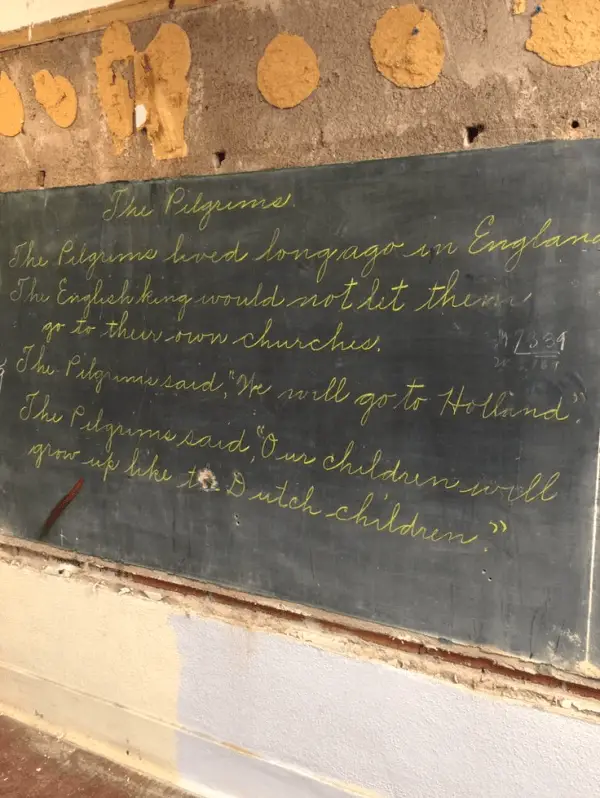 The Pilgrims.
The Pilgrims lived long ago in England
The English king would not let them
go to their own churches.
The Pilgrims said, "We will go to Holland".
The Pilgrims said, "Our children will
grow up like t Dutch children."